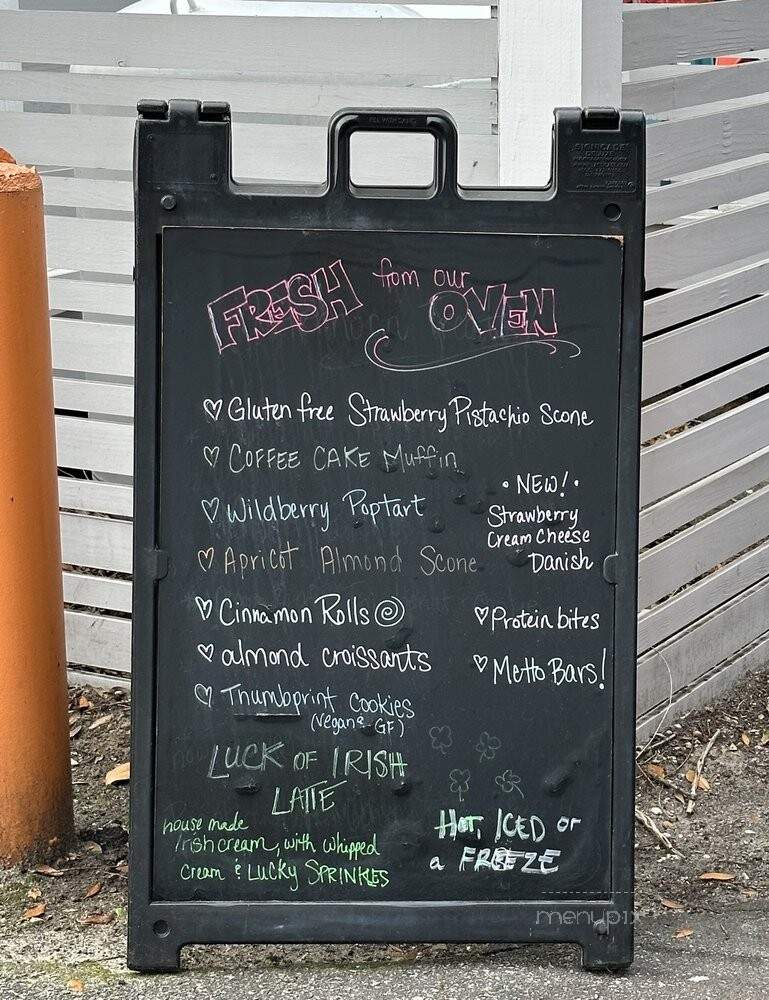 FRESH from our OVEN
♡ Gluten free Strawberry Pistachio Scone
♡ COFFEE CAKE Muffin
♡ Wildberry Poptart
♡ Apricot Almond Scone
♡ Cinnamon Rolls
♡ almond croissants
♡ Thumbprint Cookies
(vegan & GF)
• NEW! •
Strawberry
Cream Cheese
Danish
♡ Protein bites
♡ Metto Bars!
LUCK OF IRISH
LATTE
house made
Irish cream, with whipped
cream & LUCKY SPRINKLES
HOT, ICED or
a FREEZE
menupix